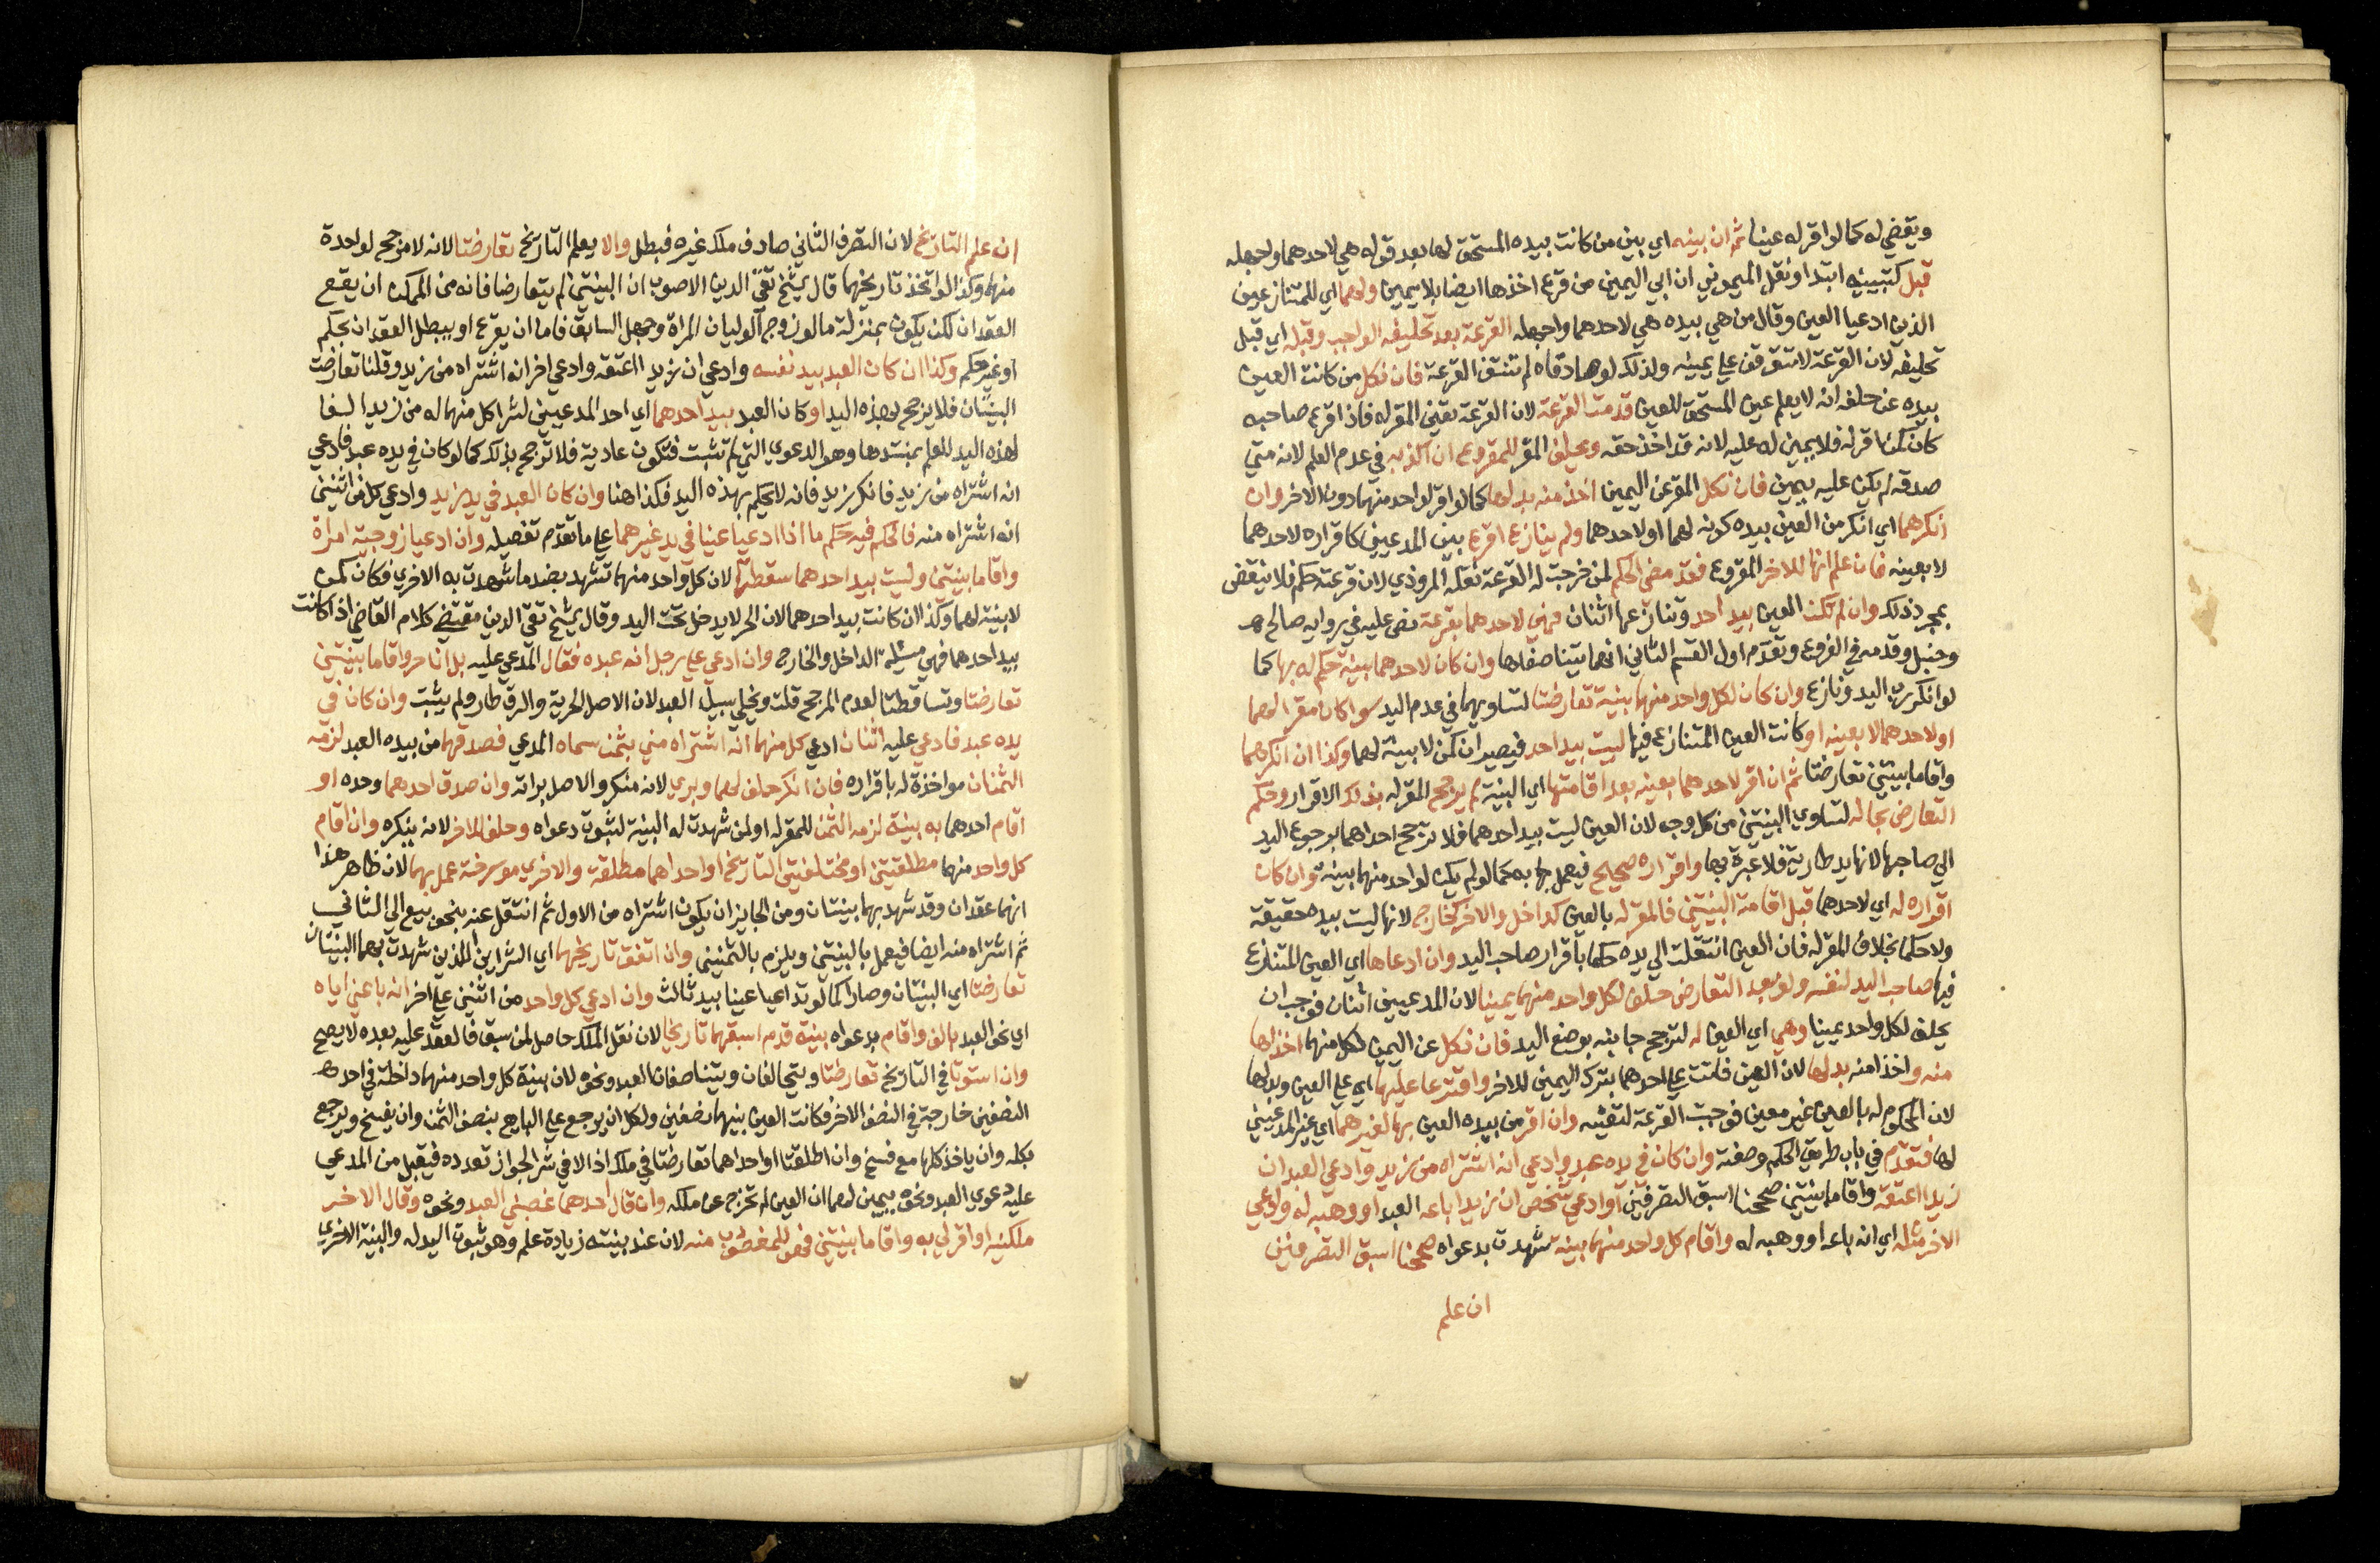 ويقضي له كما لو اقر له عينا ثم ان بينه اي بين من كانت بيده المستحق لها بعد قوله هي لاحدهما واجهله
قبل كتبيينه ابتدا ونقل الميموني ان ابي اليمين من قرع اخذها ايضا بلا يمين ولهما اي للمتنازعين
الذين ادعيا العين وقال من هي بيده هي لاحدهما واجهله القرعة بعد تحليفه الواجب وقبله اي قبل
تحليفه لان القرعة لا تتوقف علي يمينه ولذلك لو صادقاه لم تنتف القرعة فان نكل من كانت العين
بيده عن حلفه انه لا يعلم عين المستحق للعين قدمت القرعة لان القرعة تعين المقر له فاذا قرع صاحبه
كان كمن اقر له فلا يمين له عليه لانه قد اخذ حقه ويحلف المقر للمقروع ان اكذبه في عدم العلم لانه متي
صدقه لم يكن عليه يمين فان نكل المقر عن اليمين اخذ منه بدلها كما لو اقر لواحد منهما دون الاخر وان
انكرهما اي انكر من العين بيده كونه لهما او لاحدهما ولم ينازع اقرع بين المدعيين كاقراره لاحدهما
لا بعينه فان علم انها للاخر المقروع فقد مضي الحكم لمن خرجت له القرعة نقله المروذي لان قرعته حكم فلا ينقض
بمجرد ذلك وان لم تكن العين بيد احد وتنازعها اثنان فهي لاحدهما بقرعة نص عليه في رواية صالح
وحنبل وقدمه في الفروع وتقدم اول القسم الثاني انهما يتناصفاها وان كان لاحدهما بينة حكم له بها كما
لو انكر رب اليد ونازع وان كان لكل واحد منهما بينة تعارضتا لتساويهما في عدم اليد سوا كان مقرا لهما
او لاحدهما لا بعينه او كانت العين المتنازع فيها ليست بيد احد فيصيران كمن لا بينة لهما وكذا ان انكرهما
واقاما بينتين تعارضتا ثم ان اقر لاحدهما بعينه بعد اقامتها اي البينة لم يرجح المقر له بذلك الاقرار وحكم
التعارض بحاله لتساوي البينتين من كل وجه لان العين ليست بيد احدهما فلا ترجح احداهما برجوع اليد
الي صاحبها لانها يد طارية فلا عبرة بها واقراره صحيح فيعمل به كما لو لم يكن لواحد منهما بينة وان كان
اقراره له اي لاحدهما قبل اقامة البينتين فالمقر له بالعين كداخل والاخر كخارج لانها ليست بيده حقيقة
ولا حكما بخلاف المقر له فان العين انتقلت الي يده حكما باقرار صاحب اليد وان ادعاها اي العين المتنازع
فيها صاحب اليد لنفسه ولو بعد التعارض حلف لكل واحد منهما يمينا لان المدعيين اثنان فوجب ان
يحلف لكل واحد يمينا وهي اي العين له لترجح جانبه بوضع اليد فان نكل عن اليمين لكل منهما اخذاها
منه واخذا منه بدلها لان العين فاتت علي احدهما بترك اليمين للاخر واقترعا عليها اي علي العين وبدلها
لان المحكوم له بالعين غير معين فوجبت القرعة لتعينه وان اقر من بيده العين بها لغيرهما اي غير المدعيين
لها فتقدم في باب طريق الحكم وصفته وان كان في يده عبد وادعي انه اشتراه من زيد وادعي العبد ان
زيدا اعتقه واقاما بينتين صححنا اسبق التصرفين او ادعي شخص ان زيدا باعه العبد او وهبه له وادعي
الاخر مثله اي انه باعه او وهبه له واقام كل واحد منهما بينة شهدت بدعواه صححنا اسبق التصرفين
ان علم
ان علم التاريخ لان التصرف الثاني صادف ملك غيره فبطل والا يعلم التاريخ تعارضتا لانه لا مرجح لواحدة
منهما وكذا لو اتحد تاريخهما قال شيخ تقي الدين الاصوب ان البينتين لم يتعارضا فانه من الممكن ان يقع
العقدان لكن يكون بمنزلة ما لو زوج الوليان المراة وجهل السابق فاما ان يقرع او يبطل العقدان بحكم
او غير حكم وكذا ان كان العبد بيد نفسه وادعي ان زيدا اعتقه وادعي اخر انه اشتراه من زيد وقلنا تعارضت
البينتان فلا يرجح بهذه اليد او كان العبد بيد احدهما اي احد المدعيين لشرا كل منهما له من زيد الغا
لهذه اليد للعلم بمستندها وهو الدعوي التي لم تثبت فتكون عادية فلا ترجح بذلك كما لو كان في يده عبد فادعي
انه اشتراه من زيد فانكر زيد فانه لا يحكم بهذه اليد فكذا هنا وان كان العبد في يد زيد وادعي كل من اثنين
انه اشتراه منه فالحكم فيه حكم ما اذا ادعيا عينا في يد غيرهما علي ما تقدم تفصيله وان ادعيا زوجية امراة
واقاما بينتين وليست بيد احدهما سقطتا لان كل واحد منهما تشهد بضد ما شهدت به الاخري فكان كمن
لا بينة لهما وكذا ان كانت بيد احدهما لان الحر لا يدخل تحت اليد وقال شيخ تقي الدين مقتضي كلام القاضي اذا كانت
بيد احدهما فهي مسئلة الداخل والخارج وان ادعي علي رجل انه عبده فقال المدعي عليه بل انا حر واقاما بينتين
تعارضتا وتساقطتا لعدم المرجح قلت ويخلي سبيل العبد لان الاصل الحرية والرق طار ولم يثبت وان كان في
يده عبد فادعي عليه اثنان ادعي كل منهما انه اشتراه مني بثمن سماه المدعي فصدقهما من بيده العبد لزمه
الثمنان مواخذة له باقراره فان انكر حلف لهما وبري لانه منكر والاصل براته وان صدق احدهما وحده او
اقام احدهما به بينة لزمه الثمن للمقر له او لمن شهدت له البينة لثبوت دعواه وحلف للاخر لانه ينكره وان اقام
كل واحد منهما مطلقتين او مختلفتي التاريخ او احداهما مطلقة والاخري مورخة عمل بهما لان ظاهر هذا
انهما عقدان وقد شهد بهما بينتان ومن الجايز ان يكون اشتراه من الاول ثم انتقل عنه بنحو بيع الي الثاني
ثم اشتراه منه ايضا فيعمل بالبينتين ويلزم بالثمنين وان اتفق تاريخهما اي الشراين الذين شهدت بهما البينتان
تعارضتا اي البينتان وصارا كما لو تداعيا عينا بيد ثالث وان ادعي كل واحد من اثنين علي اخر انه باعني اياه
اي نحو العبد بالف واقام بدعواه بينة قدم اسبقهما تاريخا لان نقل الملك حاصل لمن سبق فالعقد عليه بعده لا يصح
وان استويا في التاريخ تعارضتا ويتحالفان ويتناصفان العبد ونحوه لان بينة كل واحد منهما داخلة في احد
النصفين خارجة في النصف الاخر فكانت العين بينهما نصفين ولكل ان يرجع علي البايع بنصف الثمن وان يفسخ ويرجع
بكله وان ياخذ كلها مع فسخ وان اطلقتا او احداهما تعارضتا في ملك اذا لا في شرا لجواز تعدده فيقبل من المدعي
عليه دعوي العبد ونحوه بيمين لهما ان العين لم تخرج عن ملكه وان قال احدهما غصبني العبد ونحوه وقال الاخر
ملكنيه او اقر لي به واقاما بينتين فهو للمغصوب منه لان عند بينته زيادة علم وهو ثبوت اليد له والبينة الاخري